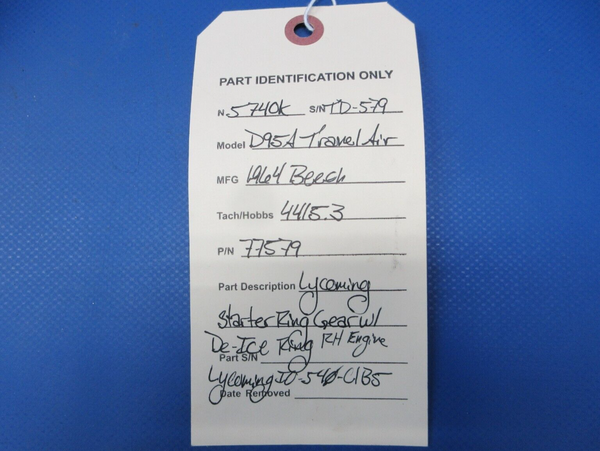 PART IDENTIFICATION ONLY
N 5740K S/N TD-579
Model D95A Travel Air
MFG 1964 Beech
Tach/Hobbs 4415.3
P/N 77579
Part Description Lycoming
Starter Ring Gear w/
De-Ice Ring RH Engine
Part S/N
Lycoming IO-540-C1B5
Date Removed